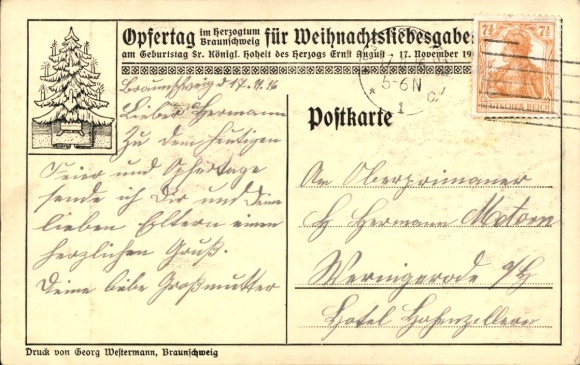 Opfertag im Herzogtum Braunschweig für Weihnachtsliebesgabe
am Geburtstag Sr. Königl. Hoheit des Herzogs Ernst August · 17. November 19
Braunschweig d 17. 11. 16
Lieber Hermann
Zu dem heutigen
Feier und Opfertage
sende ich Dir und Deine
lieben Eltern einen
herzlichen Gruß.
Deine liebe Großmutter
5-6 N
* 1 c
7½ 7½
DEUTSCHES REICH
Postkarte
An Oberprimaner
H Hermann
Wernigerode a/H
Hotel Hohenzollern
Druck von Georg Westermann, Braunschweig